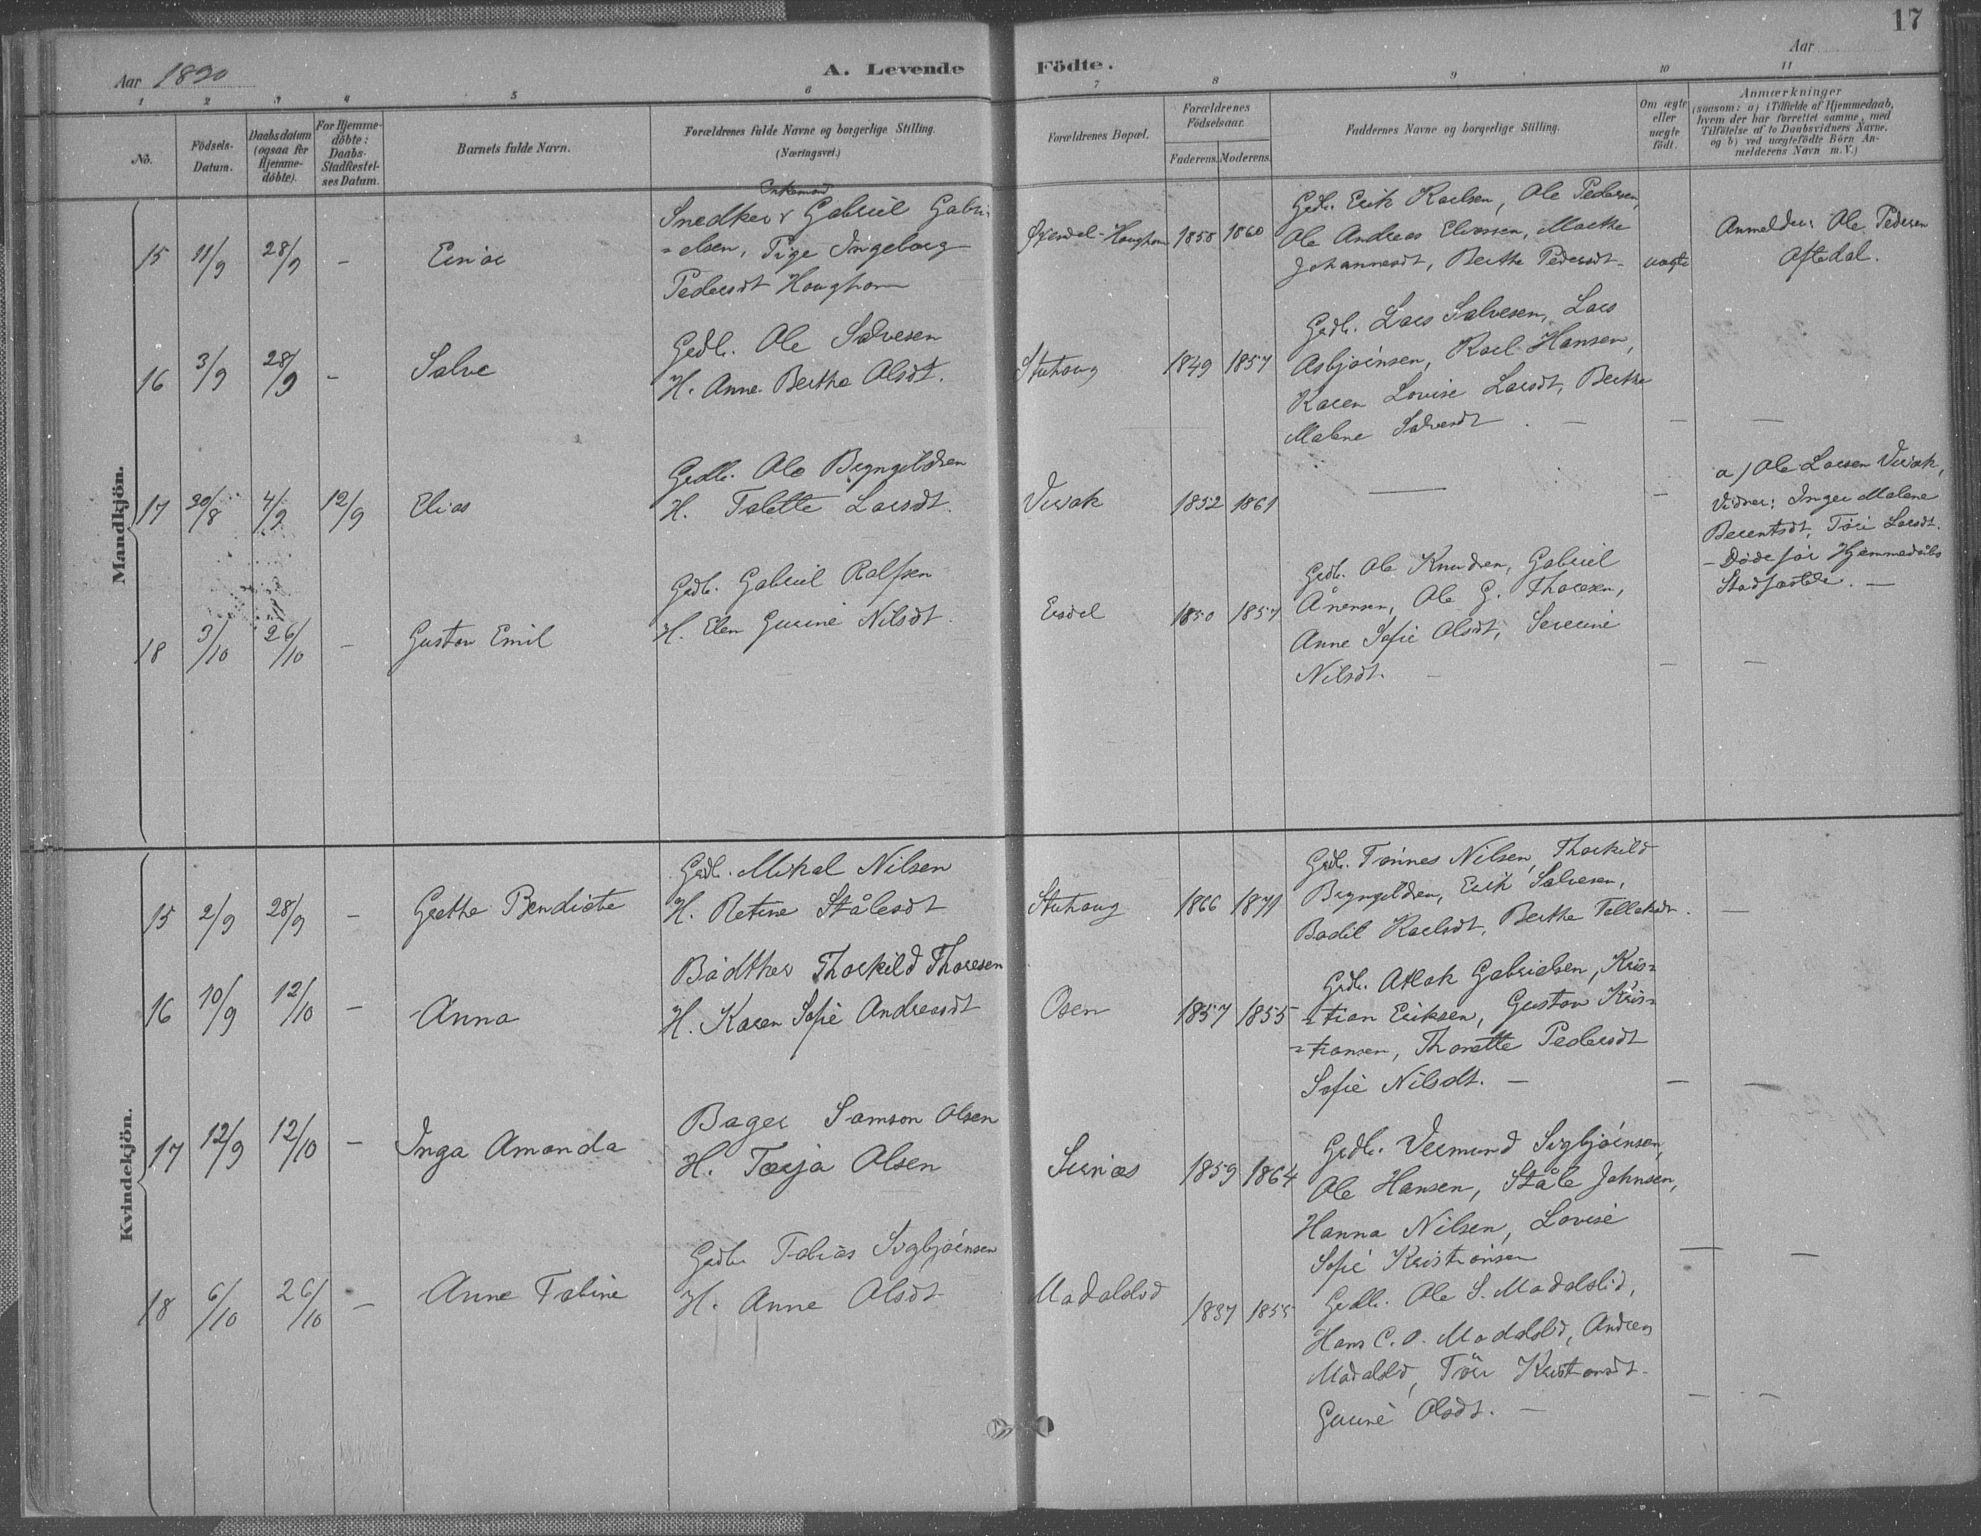 17
Aar 1890
A. Levende
Födte.
Aar
1 2 3 4 5 6 7 8 9 10 11
No.
Födsels-Datum.
Daabsdatum (ogsaa for Hjemme-döbte).
For Hjemme-döbte: Daabs-Stadfæstel-ses Datum.
Barnets fulde Navn.
Forældrenes fulde Navne og borgerlige Stilling. (Næringsvei.)
Forældrenes Bopæl.
Forældrenes Födselsaar.
Faderens. Moderens.
Faddernes Navne og borgerlige Stilling.
Om ægte eller uægte födt.
Anmærkninger (saasom: a) i Tilfælde af Hjemmedaab, hvem der har forrettet samme, med Tilföielse af to Daabsvidners Navne, og b) ved uægtefödte Börn An-melderens Navn m. V.)
Mandkjön.
15 11/9 28/9 - Einar
Enkemand
Snedker Gabriel Gabri-
-elsen, Pige Ingeborg
Pedersdt Houghom
Houghom 1858 1860
Gdbr. Erik Karlsen, Ole Pedersen,
Ole Andreas Eliassen, Marthe
Johannesdt, Berthe Pedersdt-
uægte
Anmelder: Ole Pedersen
Aftedal.
16 3/9 28/9 - Salve
Gdbr. Ole Salvesen
H. Anne Berthe Olsdt.
Stuhoug 1849 1857
Gdbr. Lars Salvesen, Lars
Asbjørnsen, Karl Hansen,
Karen Lovise Larsdt, Berthe
Malene Salvesdt. - - -
17 30/8 4/9 12/9 Elias
Gdbr. Ole Bryngildsen
H. Talette Larsdt.
Virak 1852 1861 - -
a) Ole Larsen Virak,
Vidner: Inger Malene
Berentsdt, Tøri Larsdt.
- Døde før Hjemmedåbs
Stadfæstelse. -
18 3/10 26/10 - Gustav Emil
Gdbr. Gabriel Rolfsen
H. Elen Gurine Nilsdt.
Ersdal 1850 1857
Gdbr. Ole Knudsen, Gabriel
Ånensen, Ole G. Thoresen,
Anne Sofie Olsdt, Serine
Nilsdt. - - -
Kvindekjön.
15 2/9 28/9 - Grethe Bendicte
Gdbr. Mikal Nilsen
H. Retine Stålesdt
Stuhoug 1866 1871
Gdbr. Tønnes Nilsen, Thorkild
Bryngildsen, Erik Salvesen,
Bodil Karlsdt, Berthe Tollaksdt. -
16 10/9 12/10 - Anna
Bødtker Thorkild Thoresen
H. Karen Sofie Andreasdt
Osen 1857 1855
Gdbr. Atlak Gabrielsen, Kris-
-tian Eriksen, Gustav Kris-
-tiansen, Thorette Pedersdt
Sofie Nilsdt. - - -
17 12/9 12/10 - Inga Amanda
Bager Samson Olsen
H. Tarja Olsen
Sirnæs 1859 1864
Gdbr. Vermund Sigbjørnsen,
Ole Hansen, Ståle Johnsen,
Hanna Nilsen, Lovise
Sofie Kristiansen - -
18 6/10 26/10 - Anne Tobine
Gdbr. Tobias Sigbjørnsen
H. Anne Olsdt
Madalslid 1837 1855
Gdbr. Ole S. Madalslid,
Hans C. O. Madalslid, Andreas
Madalslid, Tøri Kristiansdt.
Gurine Olsdt. - - -